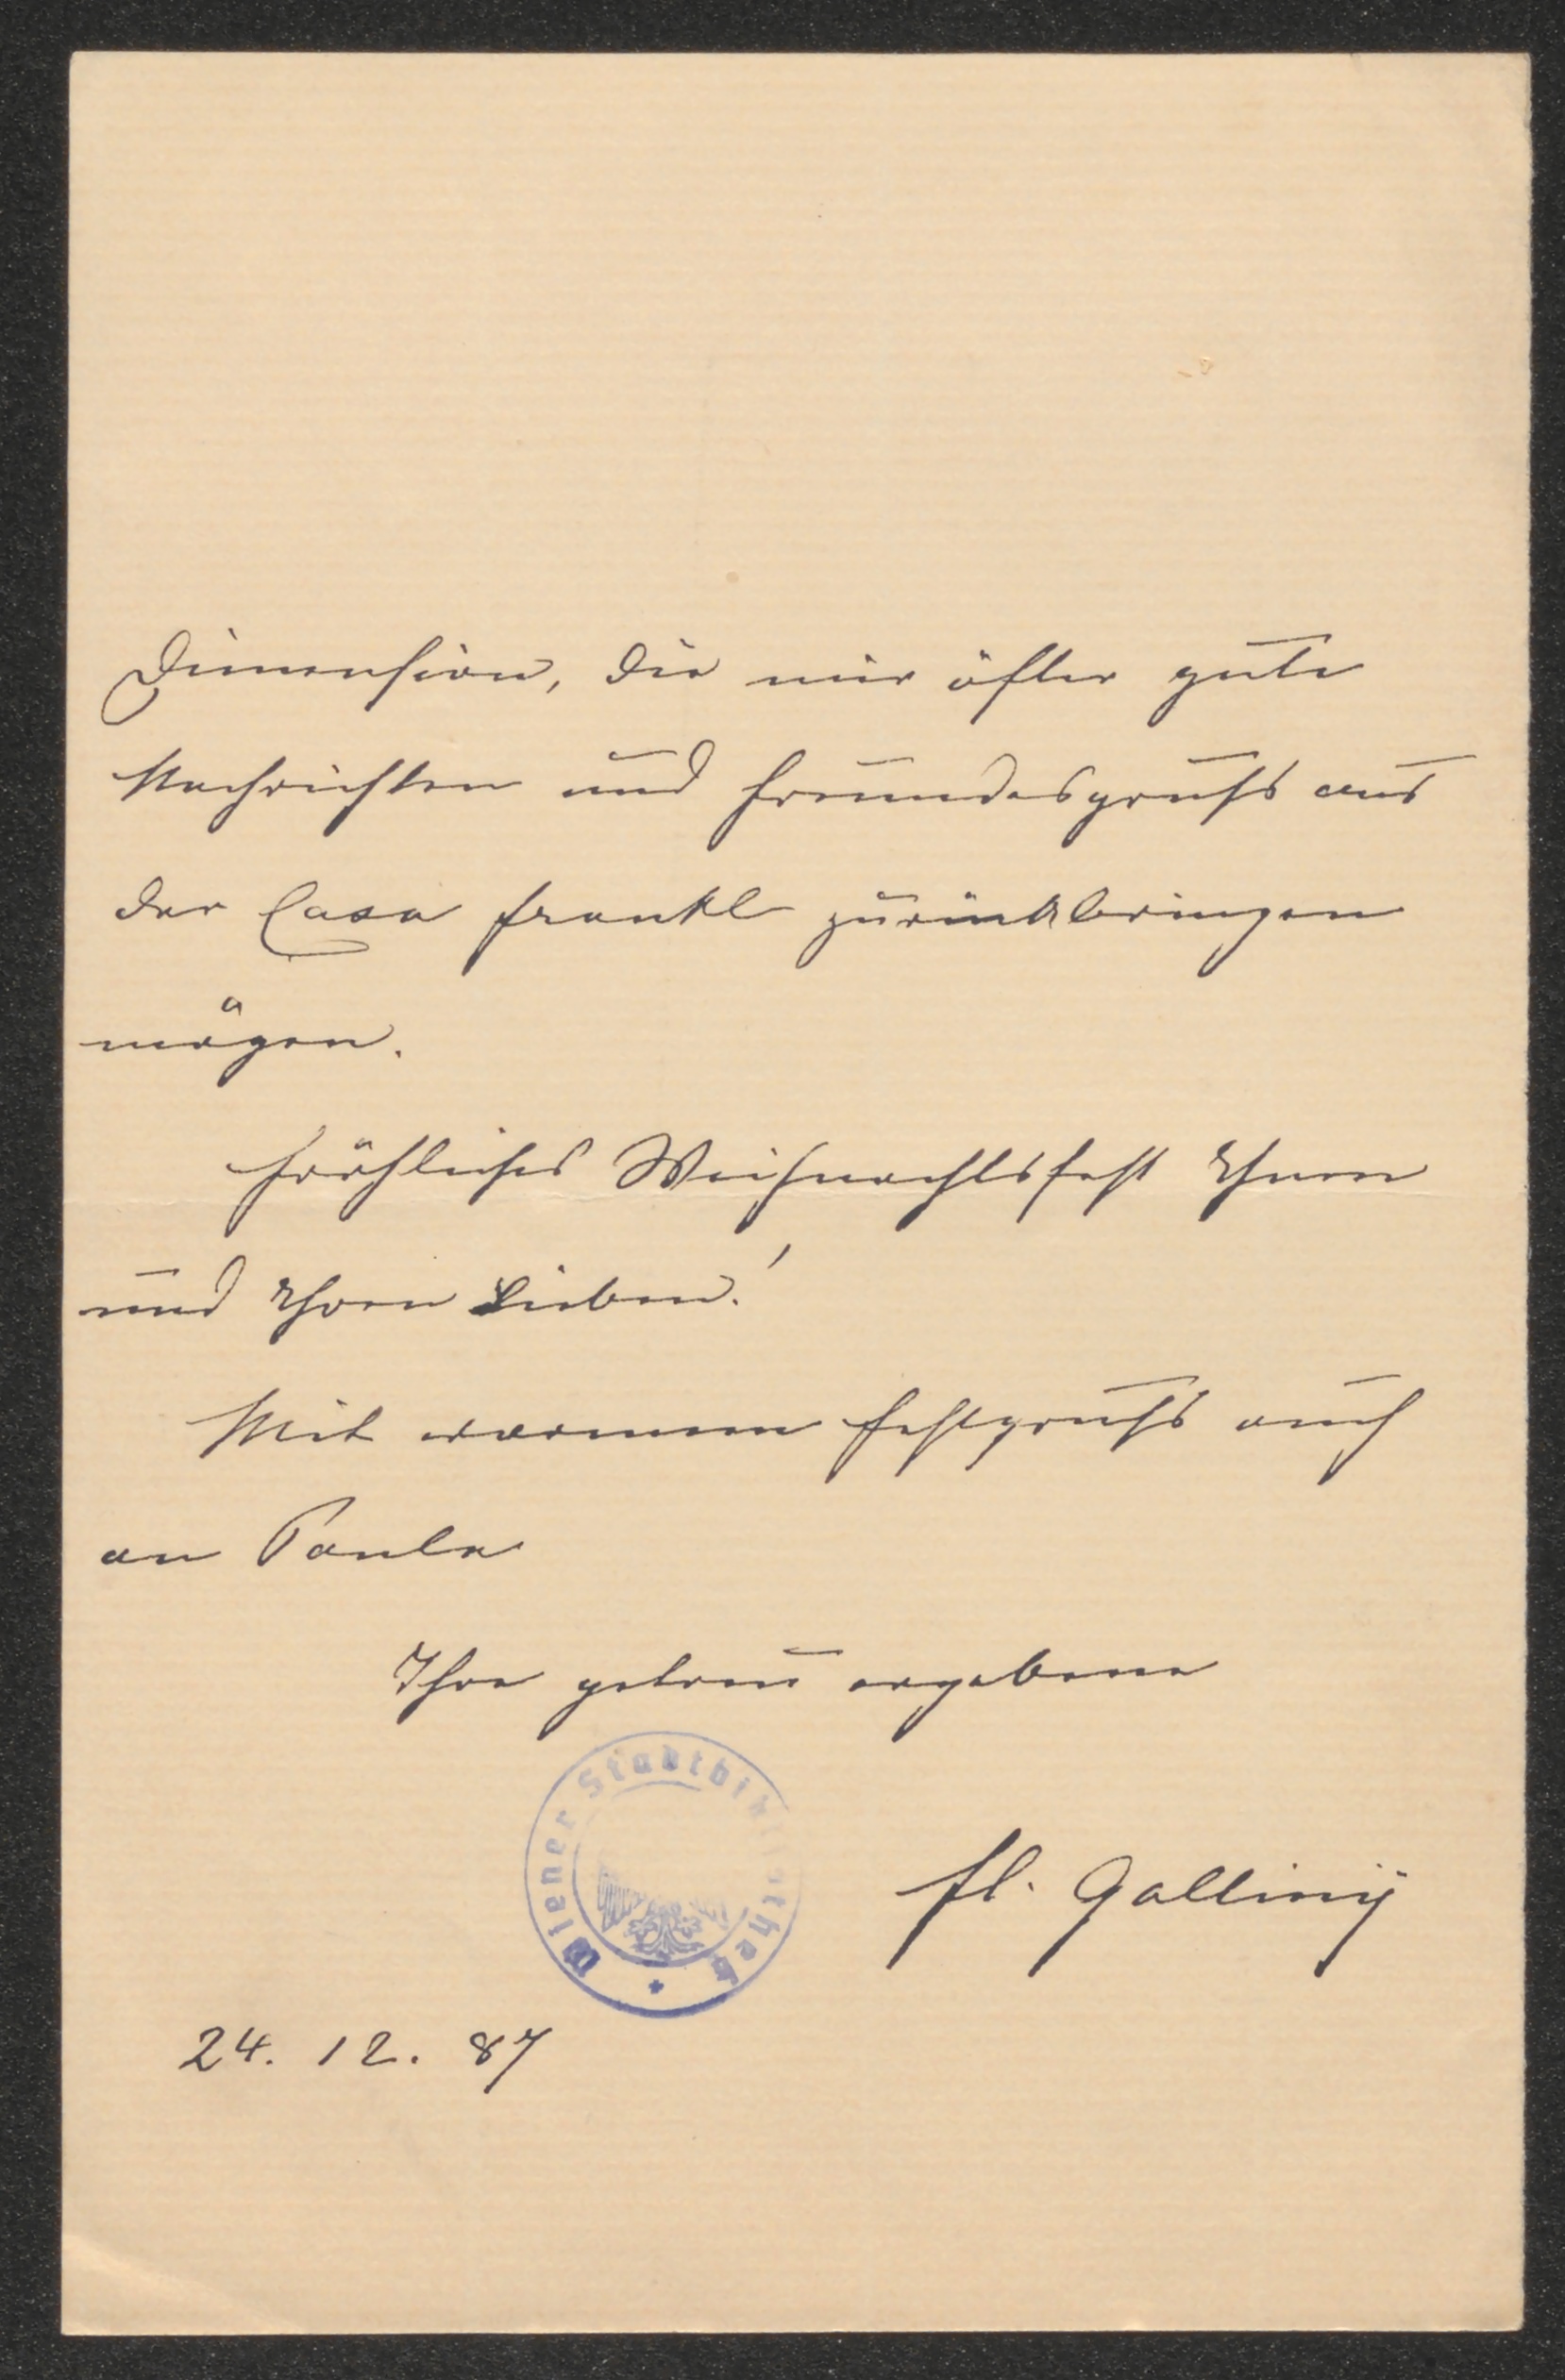 Dimension, die mir öfter gute
Nachrichten und Freundesgruß aus
der Casa Frankl zurückbringen
mögen.
Fröhliches Weihnachtsfest Ihnen
und Ihren Lieben!
Mit warmem Festgruß auch
an Paula
Ihre getreu ergebene
Fl. Galliny
Wiener Stadtbibliothek
24. 12. 87